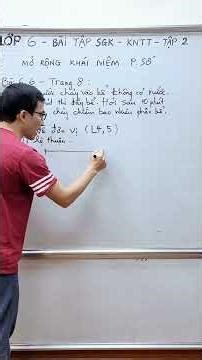 LỚP 6 - BÀI TẬP SGK - KNTT - TẬP 2
MỞ RỘNG KHÁI NIỆM P.SỐ
Bài 6.6 - Trang 8:
nước chảy vào bể không có nước.
phút thì đầy bể. Hỏi sau 10 phút
chảy chiếm bao nhiêu phần bể.
đơn vị (L4,5)
thuận